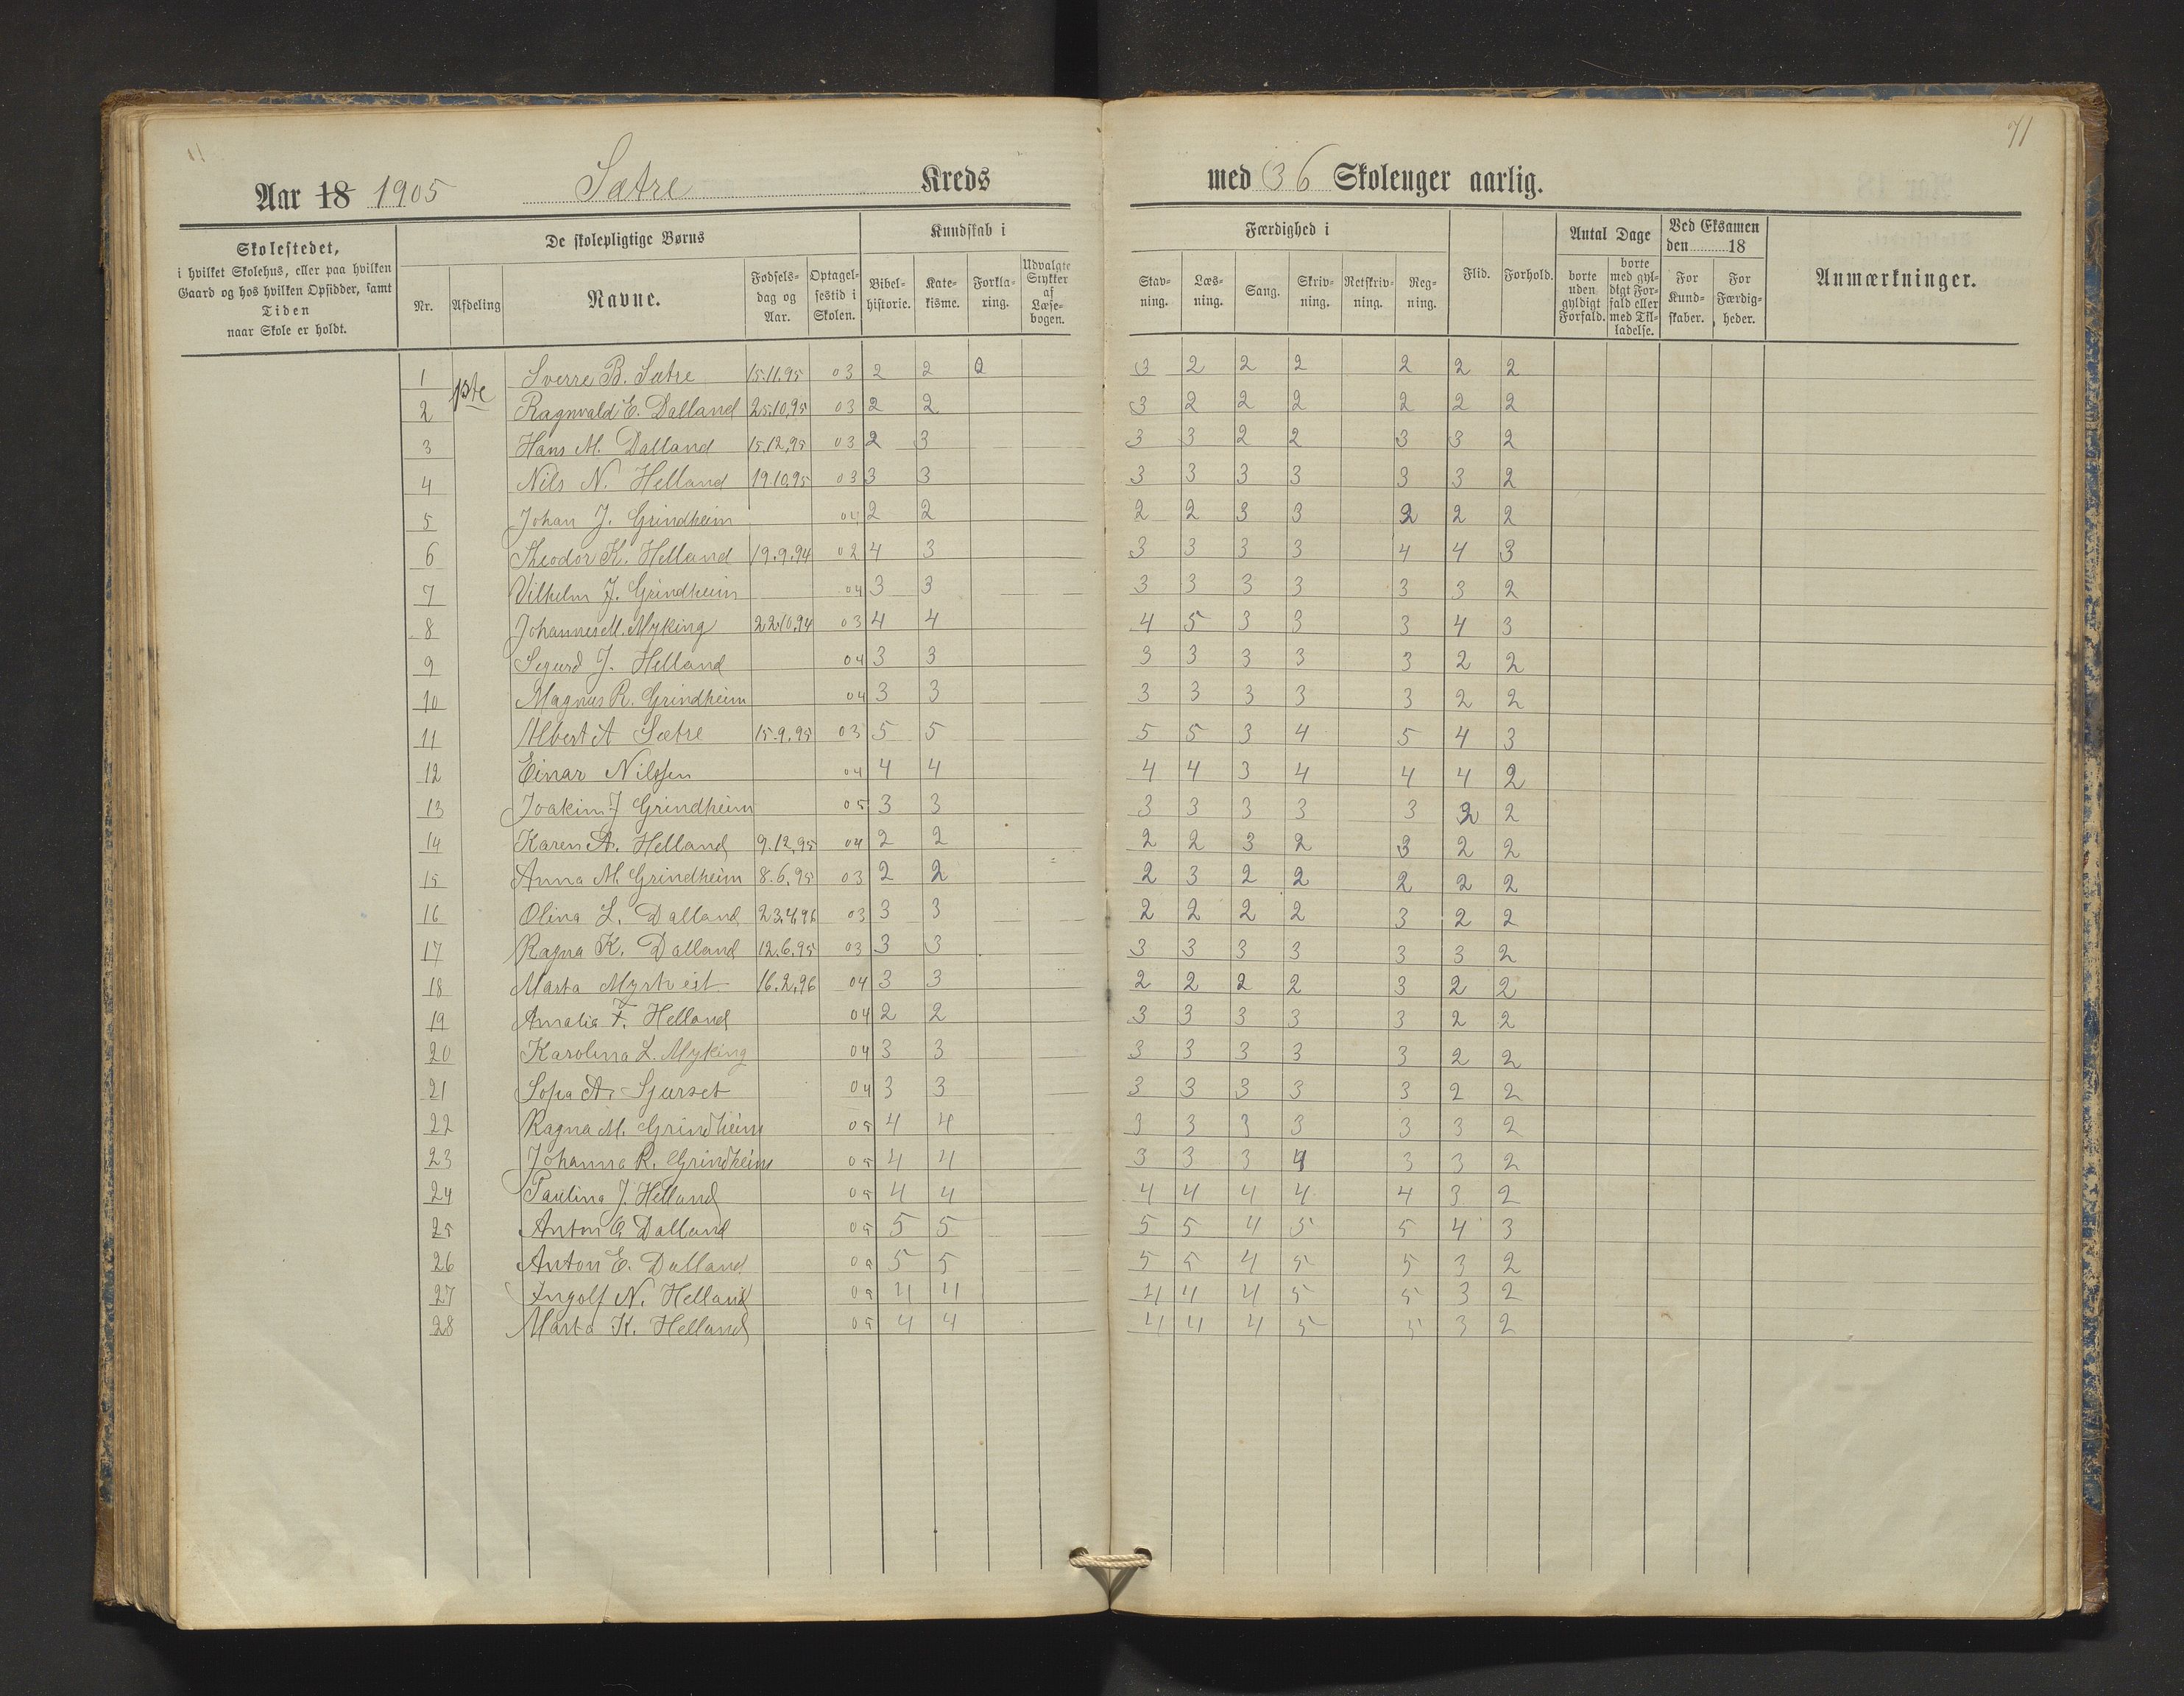 71
Aar 18 1905 Sætre Kreds med 36 Skoleuger aarlig.
Skolestedet, i hvilket Skolehus, eller paa hvilken Gaard og hos hvilken Opsidder, samt Tiden naar Skole er holdt.
De skolepligtige Børns
Nr. Afdeling Navne. Fødselsdag og Aar. Optagelsestid i Skolen.
Kundskab i
Bibelhistorie. Katekisme. Forklaring. Udvalgte Stykker af Læsebogen.
Færdighed i
Stavning. Læsning. Sang. Skrivning. Retskrivning. Regning.
Flid. Forhold.
Antal Dage
borte uden gyldigt Forfald. borte med gyldigt Forfald eller med Tilladelse.
Ved Eksamen den 18
For Kundskaber. For Færdigheder.
Anmærkninger.
1 1ste Sverre B. Sætre 15.11.95 03 2 2 2 3 2 2 2 2 2 2
2 Ragnvald E. Dalland 25.10.95 03 2 2 3 2 2 2 2 2 2
3 Hans M. Dalland 15.12.95 03 2 3 3 3 2 2 3 3 2
4 Nils N. Helland 19.10.95 03 3 3 3 3 3 3 3 3 2
5 Johan J. Grindheim 04 2 2 2 2 3 3 2 2 2
6 Theodor K. Helland 19.9.94 02 4 3 3 3 3 3 4 4 3
7 Vilhelm J. Grindheim 04 3 3 3 3 3 3 3 3 2
8 Johannes M. Myking 22.10.94 03 4 4 4 5 3 3 3 4 3
9 Sigurd J. Helland 04 3 3 3 3 3 3 3 2 2
10 Magnus R. Grindheim 04 3 3 3 3 3 3 3 2 2
11 Albert A Sætre 15.9.95 03 5 5 5 5 3 4 5 4 3
12 Einar Nilssen 04 4 4 4 4 3 4 4 4 2
13 Joakim J Grindheim 05 3 3 3 3 3 3 3 2 2
14 Karen A. Helland 9.12.95 04 2 2 2 2 3 2 3 2 2
15 Anna M. Grindheim 8.6.95 03 2 2 2 3 2 2 2 2 2
16 Olina L. Dalland 23.4.96 03 3 3 2 2 2 2 3 2 2
17 Ragna K. Dalland 12.6.95 03 3 3 3 3 3 3 3 3 2
18 Marta 16.2.96 04 3 3 2 2 2 2 3 2 2
19 Amalia F. Helland 04 2 2 3 3 3 3 3 2 2
20 Karolina L. Myking 04 3 3 3 3 3 3 3 2 2
21 Sofia A. 04 3 3 3 3 3 3 3 2 2
22 Ragna M. Grindheim 05 4 4 3 3 3 3 3 3 2
23 Johanna R. Grindheim 05 4 4 3 3 3 4 3 3 2
24 Paulina J. Helland 05 4 4 4 4 4 4 4 3 2
25 Anton Dalland 05 5 5 5 5 4 5 5 4 3
26 Anton E. Dalland 05 5 5 5 5 4 5 5 3 2
27 Ingolf N. Helland 05 4 4 4 4 4 5 5 3 2
28 Marta K. Helland 05 4 4 4 4 4 5 5 3 2